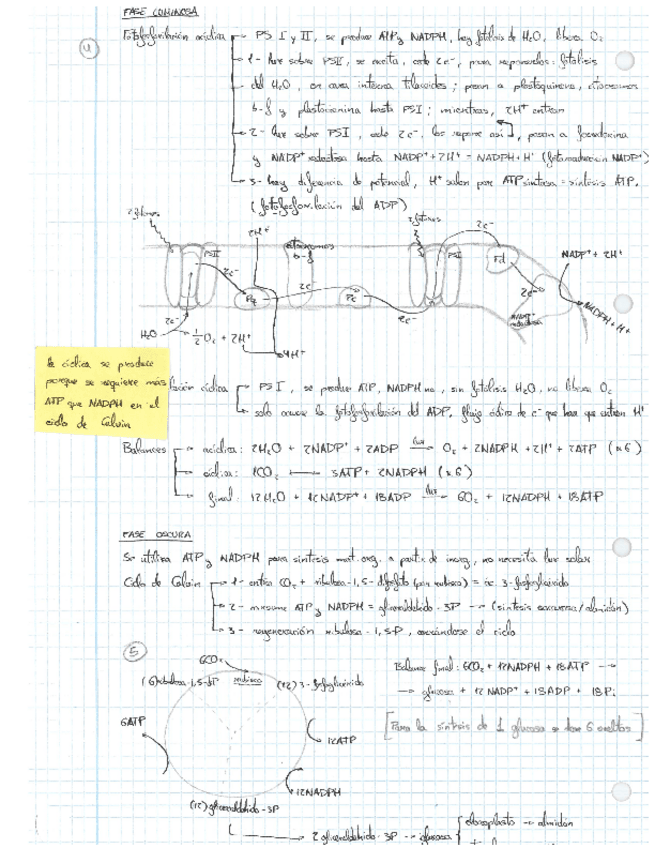 FASE LUMINOSA
4
Fotofosforilación acíclica
PS I y II, se produce ATP y NADPH, hay fotólisis de H₂O, libera O₂
1- luz sobre PSII, se excita, cede 2e⁻, para reponerlos: fotólisis
del H₂O, en cara interna tilacoides; pasan a plastoquinona, citocromos
b-f y plastocianina hasta PSI; mientras, 2H⁺ entran
2- luz sobre PSI, cede 2e⁻, los repone así, pasan a ferredoxina
y NADP⁺ reductasa hasta NADP⁺ + 2H⁺ = NADPH + H⁺ (fotorreducción NADP⁺)
3- hay diferencia de potencial, H⁺ salen por ATP sintasa = síntesis ATP.
(fotofosforilación del ADP)
2 fotones
2H⁺
citocromos
b-f
2 fotones
2e⁻
PSII
2e⁻
Pq
2e⁻
Pc
2e⁻
PSI
Fd
2e⁻
NADP⁺ + 2H⁺
NADPH + H⁺
NADP⁺
reductasa
2e⁻
H₂O
½O₂ + 2H⁺
4H⁺
la cíclica se produce
porque se requiere más
ATP que NADPH en el
ciclo de Calvin
lación cíclica
PS I, se produce ATP, NADPH no, sin fotólisis H₂O, no libera O₂
solo ocurre la fotofosforilación del ADP, flujo cíclico de e⁻ que hace que entren H⁺
Balances
acíclica: 2H₂O + 2NADP⁺ + 2ADP luz O₂ + 2NADPH + 2H⁺ + 2ATP (x6)
cíclica: 1CO₂ → 3ATP + 2NADPH (x6)
final: 12H₂O + 12NADP⁺ + 18ADP luz 6O₂ + 12NADPH + 18ATP
FASE OSCURA
Se utiliza ATP y NADPH para síntesis mat. org. a partir de inorg, no necesita luz solar
Ciclo de Calvin
1- entra CO₂ + ribulosa-1,5-difosfato (por rubisco) = ác. 3-fosfoglicérido
2- consume ATP y NADPH = gliceraldehído-3P → (síntesis sacarosa/almidón)
3- regeneración ribulosa-1,5-P, cerrándose el ciclo
5
6CO₂
(6) ribulosa-1,5-dP
rubisco
(12) 3-fosfoglicérido
6ATP
12ATP
12NADPH
(12) gliceraldehído-3P
Balance final: 6CO₂ + 12NADPH + 18ATP →
→ glucosa + 12NADP⁺ + 18ADP + 18Pᵢ
[Para la síntesis de 1 glucosa se dan 6 vueltas]
2 gliceraldehído-3P → glucosa
cloroplasto → almidón